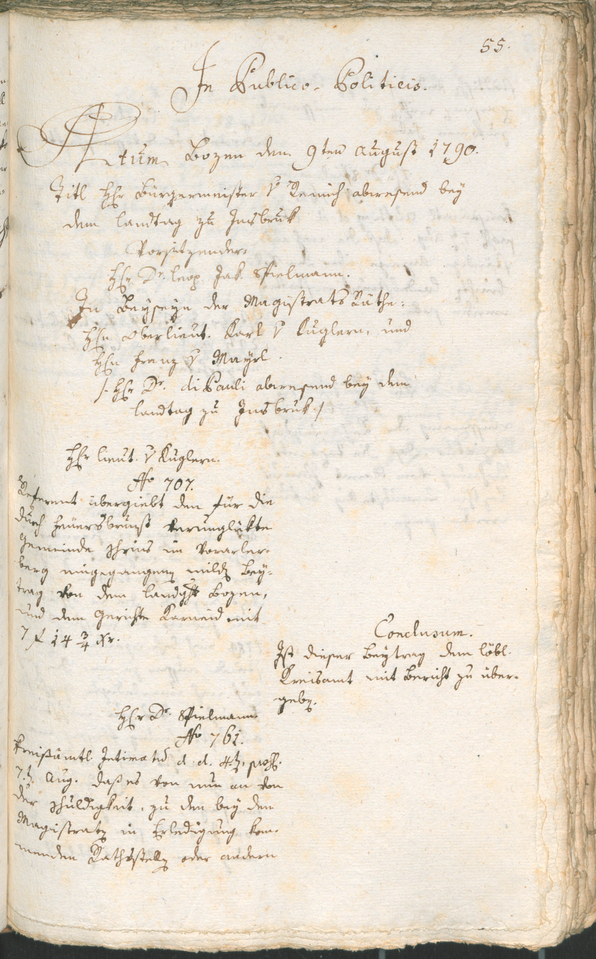 55.
In Publico-Politicis.
Actum Bozen den 9ten August 1790.
Titl Hhr Bürgermeister v Remich abwesend bey
dem Landtag zu Insbruk
Vorsitzender.
Hhr Dr. Leop Jak Spielmann.
In Beyseyn der Magistrats Räthe.
Hhn Oberlieut. Karl v Kuglern, und
Hhn Franz v Mayrl.
/: Hhr Dr. di Pauli abwesend bey dem
Landtag zu Insbruk :/
Hhr Lieut. v Kuglern.
No 707.
Referent übergiebt den für die
durch Feuersbrunst verunglükte
Gemeinde im Vorarler-
berg eingegangenen milden Bey-
trag von dem Landgcht Bozen,
und dem Gerichte Karneid mit
7 f 14 3/4 Xr.
Conclusum.
Ist dieser Beytrag dem löbl.
Kreisamt mit Bericht zu über-
geben.
Hhr Dr. Spielmann
No 761.
Kreisämtl. Intimatum d. d. 4t. praes.
7t. Aug. daß es von nun an von
der Schuldigkeit, zu den bey den
Magistraten in Erledigung kom-
menden Rathsstellen oder andern